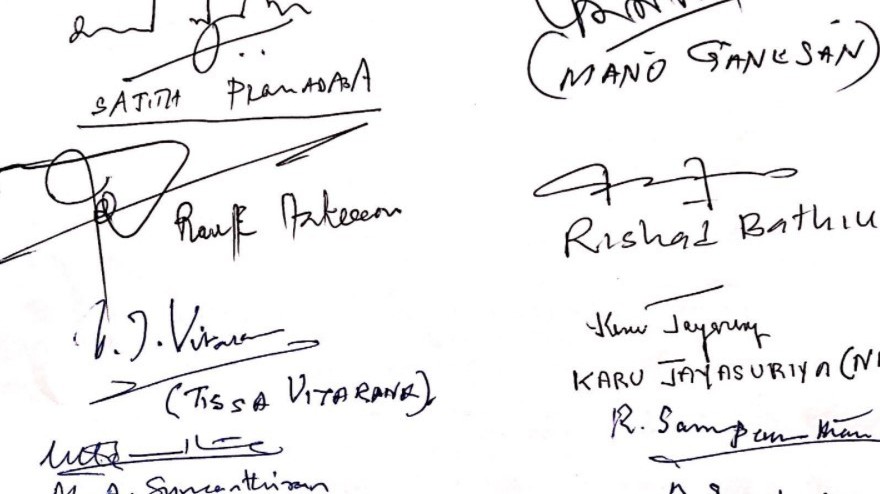 SAJITH PREMADASA
(MANO GANESAN)
Rauff Hakeem
Rishad Bathiu
T. J. Vitarana
(TISSA VITARANA)
Karu Jayasuriya
KARU JAYASURIYA (N
R. Sampanthan
M. A. Sumanthiran